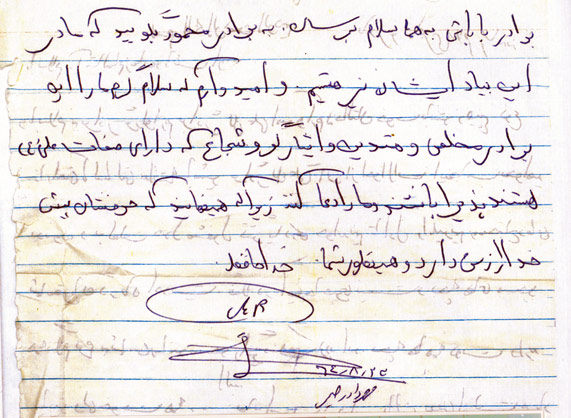 برادر بابائی به هما سلام برسان. به برادر محمود بگویید که ما در
این بیاد ایشان نیز هستیم. و امیدوارم که سلام گرم ما را این
برادر مخلص و متدین و ایثارگر و شجاع که دارای صفات علی (ع)
هستند پذیرا باشند و ما را دعا کنند زیرا که میدانید که حرفشان پیش
خدا ارزش دارد و همینطور شما. خداحافظ.
۶۴/۸/۲۵